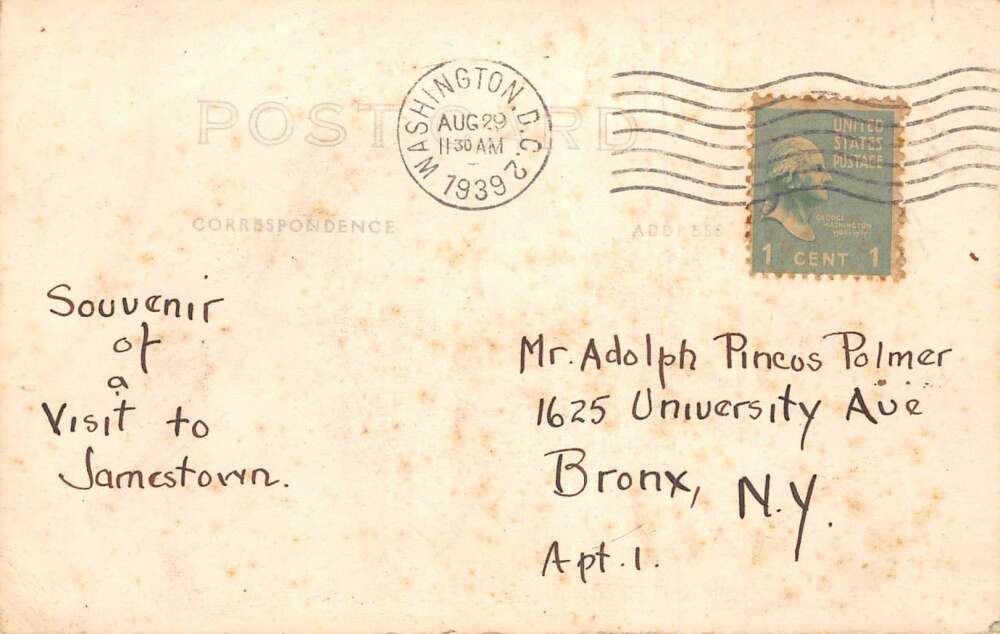 POST CARD
WASHINGTON, D.C. 2
AUG 29
11 30 AM
1939
UNITED
STATES
POSTAGE
GEORGE
WASHINGTON
1 CENT 1
CORRESPONDENCE
ADDRESS
Souvenir
of
a
Visit to
Jamestown.
Mr. Adolph Pincos Polmer
1625 University Ave
Bronx, N.Y.
Apt. 1.